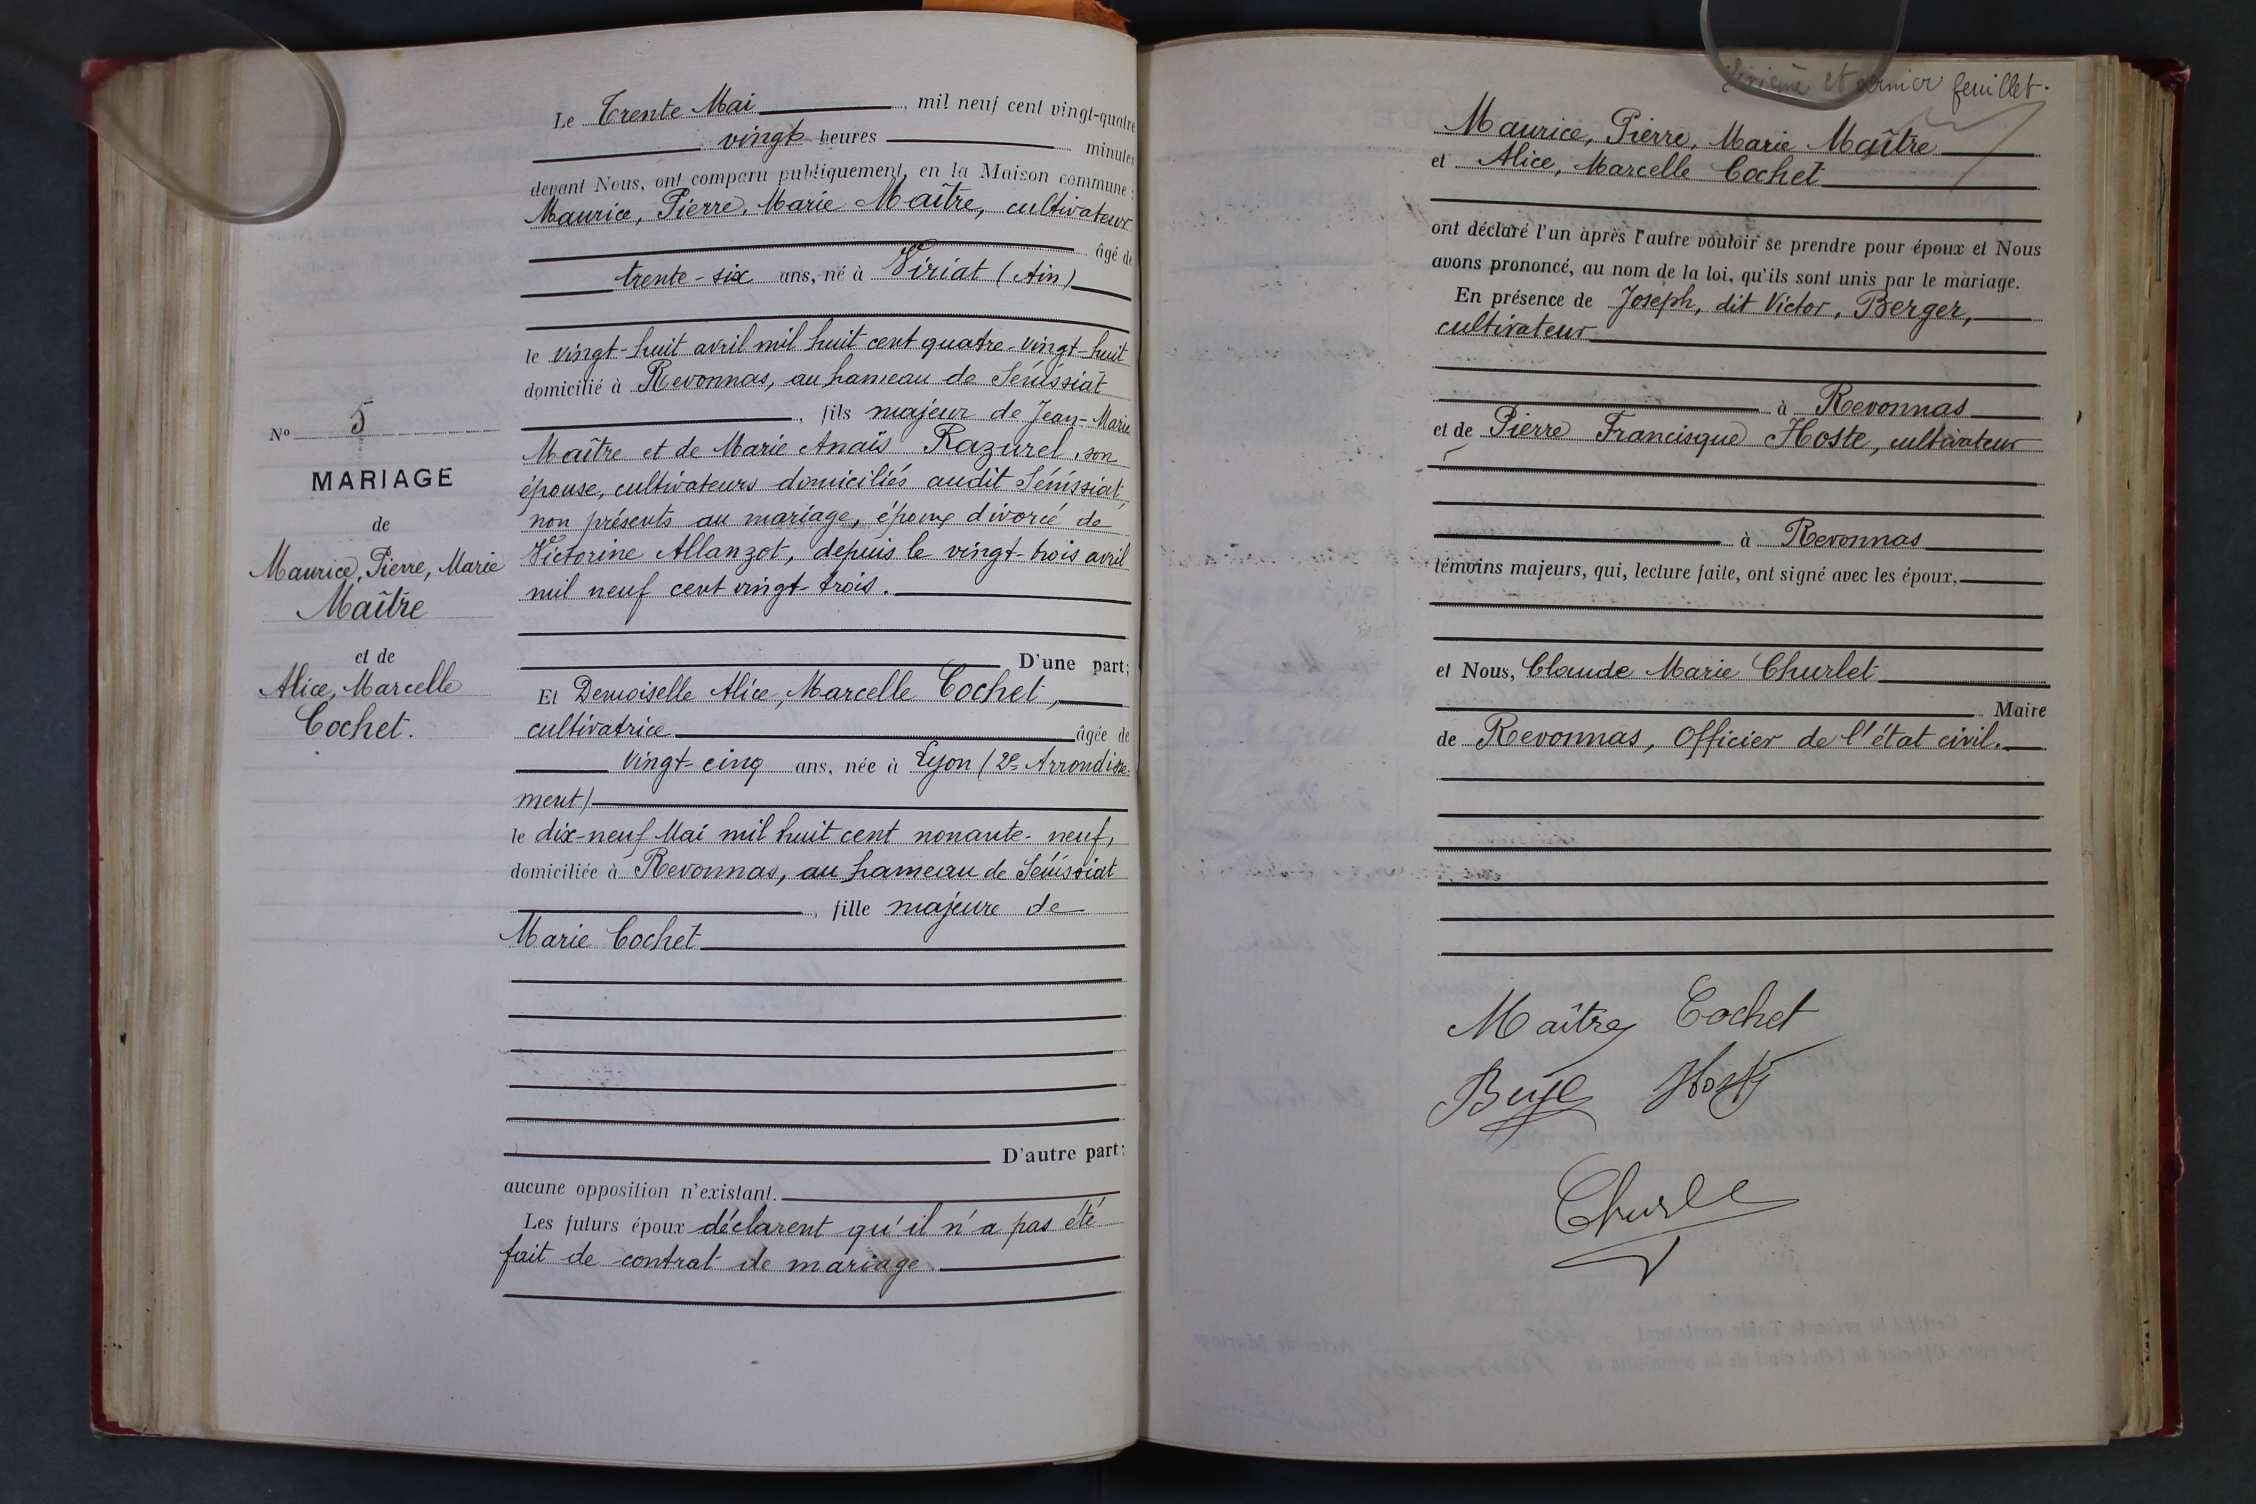 Le Trente Mai, mil neuf cent vingt-quatre
vingt heures minutes
devant Nous, ont comparu publiquement, en la Maison commune :
Maurice, Pierre, Marie Maître, cultivateur
âgé de
trente-six ans, né à Viriat (Ain)
le vingt-huit avril mil huit cent quatre-vingt-huit
domicilié à Revonnas, au hameau de Sénissiat
, fils majeur de Jean-Marie
Maître et de Marie Anaïs Razurel, son
épouse, cultivateurs domiciliés audit Sénissiat,
non présents au mariage, époux divorcé de
Victorine Allanzot, depuis le vingt-trois avril
mil neuf cent vingt trois.
D'une part;
Nº 5
MARIAGE
de
Maurice, Pierre, Marie
Maître
et de
Alice, Marcelle
Cochet.
Et Demoiselle Alice, Marcelle Cochet,
cultivatrice âgée de
vingt-cinq ans, née à Lyon (2e Arrondisse-
ment)
le dix-neuf Mai mil huit cent nonante-neuf,
domiciliée à Revonnas, au hameau de Sénissiat
, fille majeure de
Marie Cochet
D'autre part;
aucune opposition n'existant.
Les futurs époux déclarent qu'il n'a pas été
fait de contrat de mariage.
et dernier feuillet.
Maurice, Pierre, Marie Maître
et Alice, Marcelle Cochet
ont déclaré l'un après l'autre vouloir se prendre pour époux et Nous
avons prononcé, au nom de la loi, qu'ils sont unis par le mariage.
En présence de Joseph, dit Victor, Berger,
cultivateur
à Revonnas
et de Pierre Francisque Hoste, cultivateur
à Revonnas
témoins majeurs, qui, lecture faite, ont signé avec les époux,
et Nous, Claude Marie Churlet
Maire
de Revonnas, Officier de l'état civil.
Maître Cochet